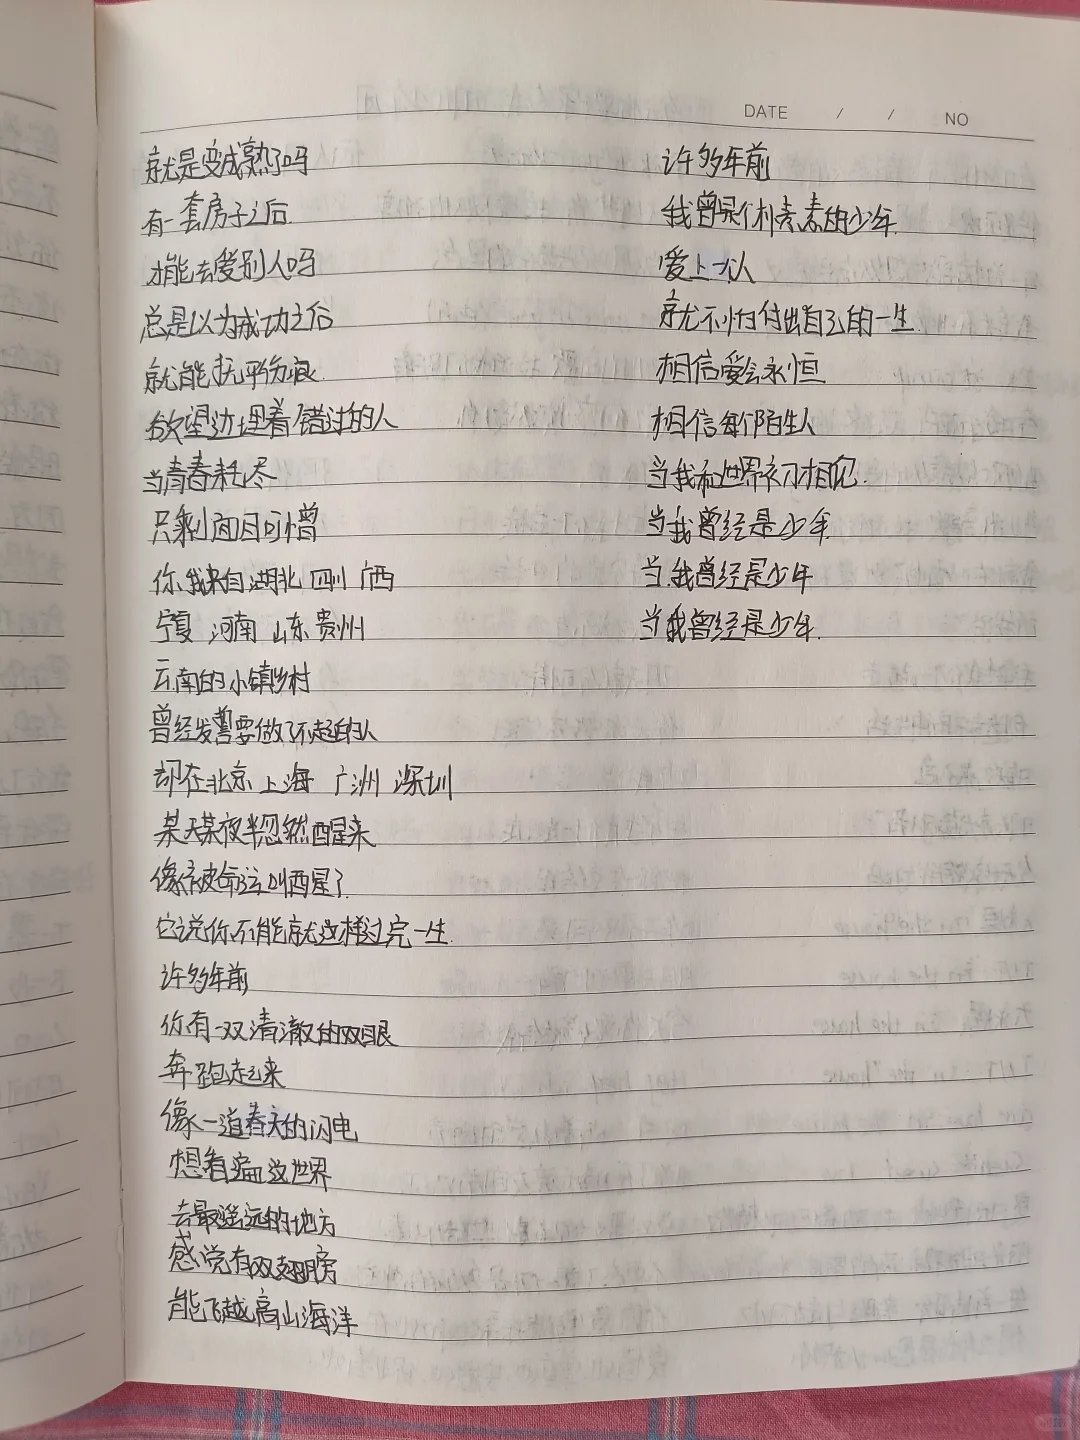 DATE / / NO
就是变成熟了吗
有一套房子之后
才能去爱别人吗
总是以为成功之后
就能抚平伤痕
欲望边埋着错过的人
当青春耗尽
只剩面目可憎
你我来自湖北 四川 广西
宁夏 河南 山东 贵州
云南的小镇乡村
曾经发誓要做了不起的人
却在北京 上海 广洲 深圳
某天某夜半忽然醒来
像被命运叫醒了
它说你不能就这样过完一生
许多年前
你有一双清澈的双眼
奔跑起来
像一道春天的闪电
想看遍这世界
去最遥远的地方
感觉有双翅膀
能飞越高山海洋
许多年前
我曾是个朴素的少年
爱上一个人
就不怕付出自己的一生
相信爱会永恒
相信每个陌生人
当我和世界初相见
当我曾经是少年
当我曾经是少年
当我曾经是少年